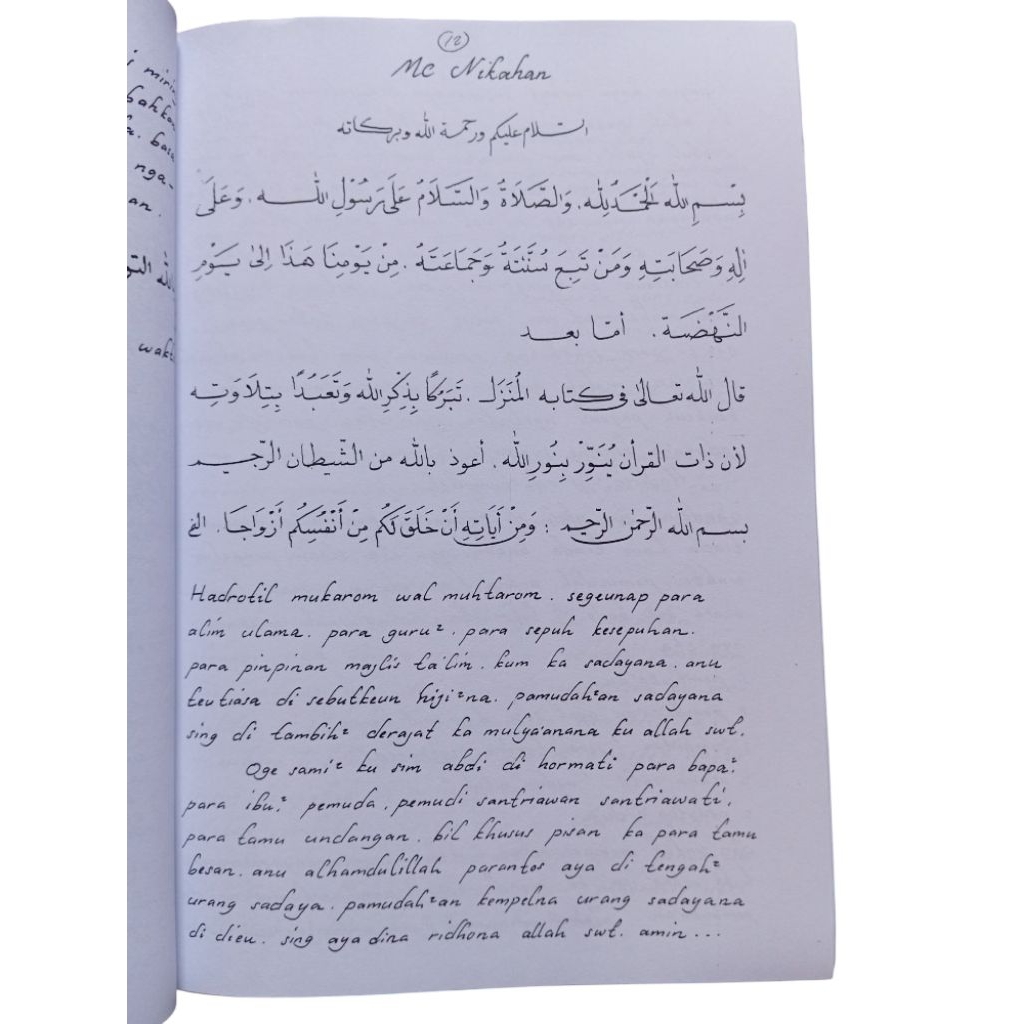 12
MC Nikahan
السلام عليكم ورحمة الله وبركاته
بِسْمِ الله اَلْحَمْدُ لِلّٰه. وَالصَّلَاةُ وَالسَّلَامُ عَلَى رَسُوْلِ الله. وَعَلَى
اٰلِهِ وَصَحَابَتِهِ وَمَنْ تَبِعَ سُنَّتَهُ وَجَمَاعَتَهُ. مِنْ يَوْمِنَا هَذَا اِلىٰ يَوْمِ
النَّهْضَة. أمّا بعد
قال الله تعالىٰ في كتابه المُنَزَل. تَبَرُكًا بِذِكْرِ الله وَتَعَبُدًا بِتِلَاوَتِه
لأن ذات القرأن يُنَوِّرْ بِنُورِ الله. أعوذ بالله من الشّيطان الرّجيم
بسم الله الرّحمٰن الرّحيم : وَمِنْ أَيَاتِهِ أَنْ خَلَقَ لَكُم مِنْ أَنْفُسِكُم أَزْوَاجَا. الخ
Hadrotil mukarom wal muhtarom. segeunap para
alim ulama. para guru². para sepuh kesepuhan.
para pinpinan majlis ta'lim. kum ka sadayana. anu
teu tiasa di sebutkeun hiji²na. pamudah²an sadayana
sing di tambih² derajat ka mulya'anana ku allah swt.
Oge sami² ku sim abdi di hormati para bapa².
para ibu². pemuda. pemudi santriawan santriawati.
para tamu undangan. bil khusus pisan ka para tamu
besan. anu alhamdulillah parantos aya di tengah²
urang sadaya. pamudah²an kempelna urang sadayana
di dieu. sing aya dina ridhona allah swt. amin...
miri
bahkan
basa
nga-
an.
wakt